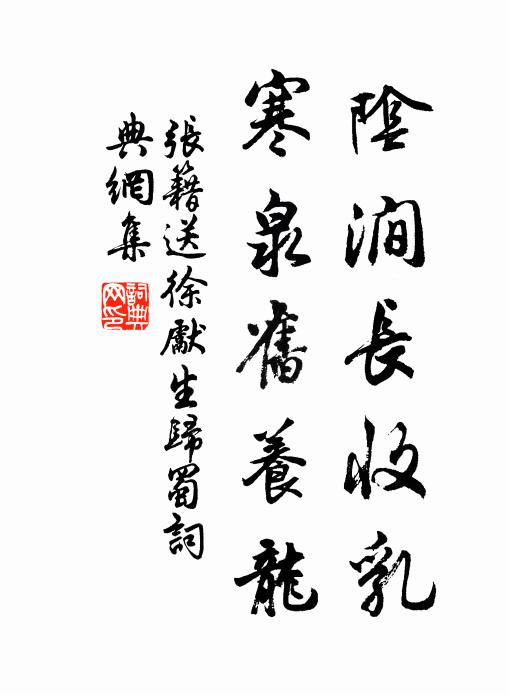 陰澗長收乳
寒泉舊養龍
張籍送徐獻生歸蜀詞
典網集
詞典網印